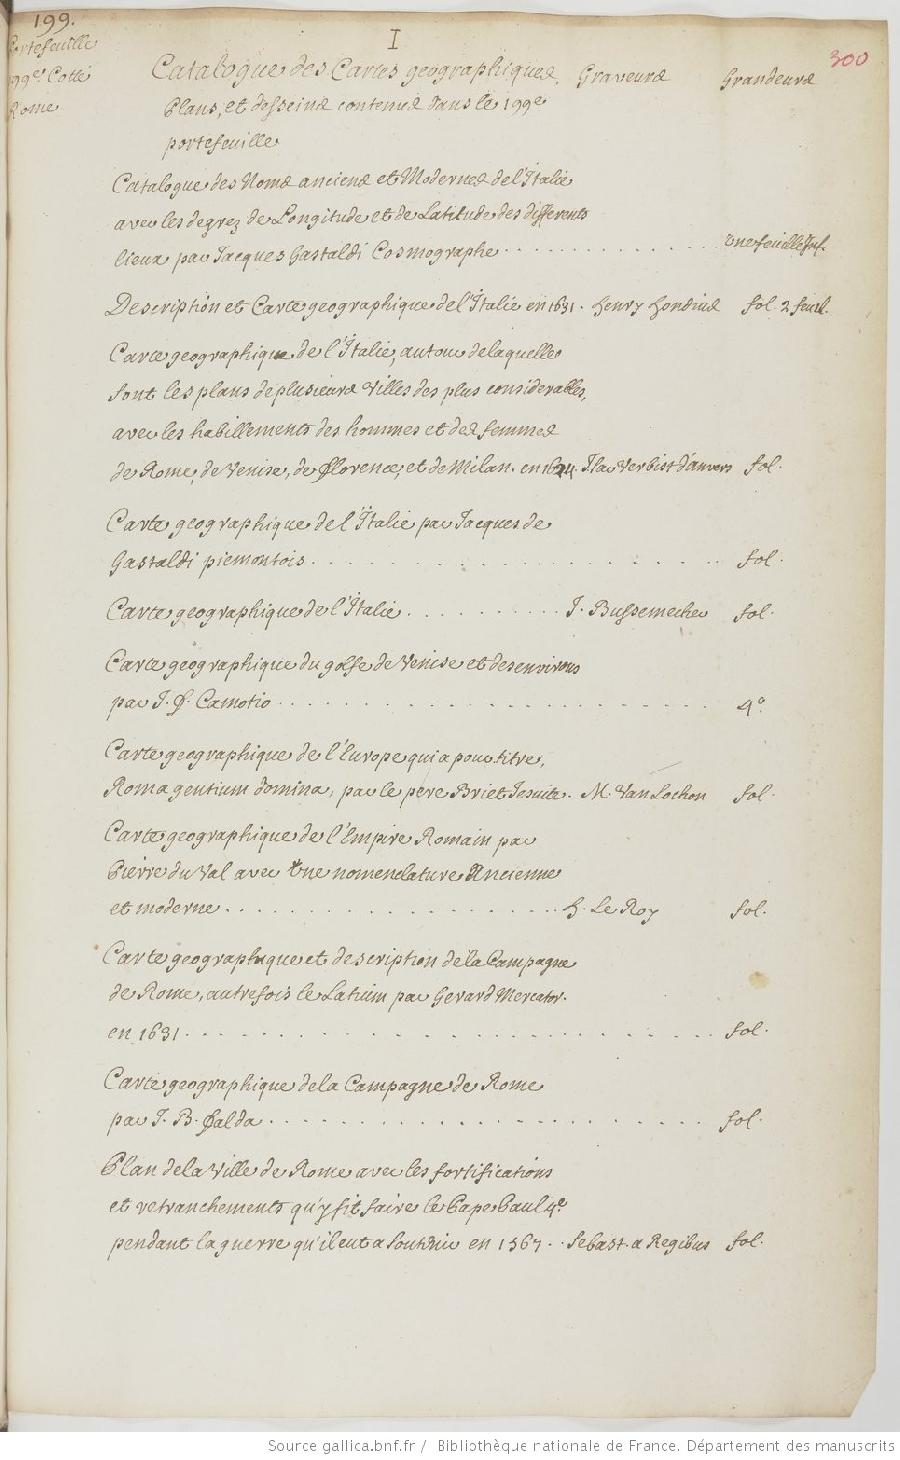 199.
Portefeuille
199e Cotté
Rome
I
300
Catalogue des Cartes geographiques Graveurs Grandeurs
Plans, et desseins contenus dans le 199e
portefeuille
Catalogue des Noms anciens et Modernes de l'Italie
avec les degrez de Longitude et de Latitude des differents
lieux par Jacques Gastaldi Cosmographe . . . . . . . . . . une feuille inf.
Description et Carte geographique de l'Italie en 1631. Henry Hondius fol. 2 feuil.
Carte geographique de l'Italie, autour de laquelle
sont les plans de plusieurs villes des plus considerables,
avec les habillements des hommes et des femmes
de Rome, de Venise, de Florence, et de Milan. en 1624. Verbist d'anvers fol.
Carte geographique de l'Italie par Jacques de
Gastaldi piemontois . . . . . . . . . . . . . . . . fol.
Carte geographique de l'Italie . . . . . . . . . . J. Bussemecher fol.
Carte geographique du golfe de Venise et des environs
par J. F. Camotio . . . . . . . . . . . . . . . . 4°.
Carte geographique de l'Europe qui a pour titre,
Roma gentium domina, par le pere Briet Jesuite. M. Van Lochon fol.
Carte geographique de l'Empire Romain par
Pierre du Val avec une nomenclature Ancienne
et moderne . . . . . . . . . . . . . . . H. Le Roy fol.
Carte geographique et description de la Campagne
de Rome, autrefois le Latium par Gerard Mercator.
en 1631 . . . . . . . . . . . . . . . . . . . . fol.
Carte geographique de la Campagne de Rome
par J. B. Falda . . . . . . . . . . . . . . . . fol.
Plan de la Ville de Rome avec les fortifications
et retranchements qu'y fit faire le Pape Paul 4e
pendant la guerre qu'il eut a soutenir en 1567. . Sebast. a Regibus fol.
Source gallica.bnf.fr / Bibliothèque nationale de France. Département des manuscrits